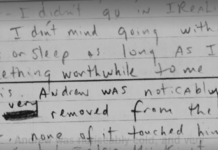 - I didn't go in I Reali
I don't mind going with
or sleep as long as I
ething worthwhile to me
is. Andrew was noticably
very removed from the
none of it touched him